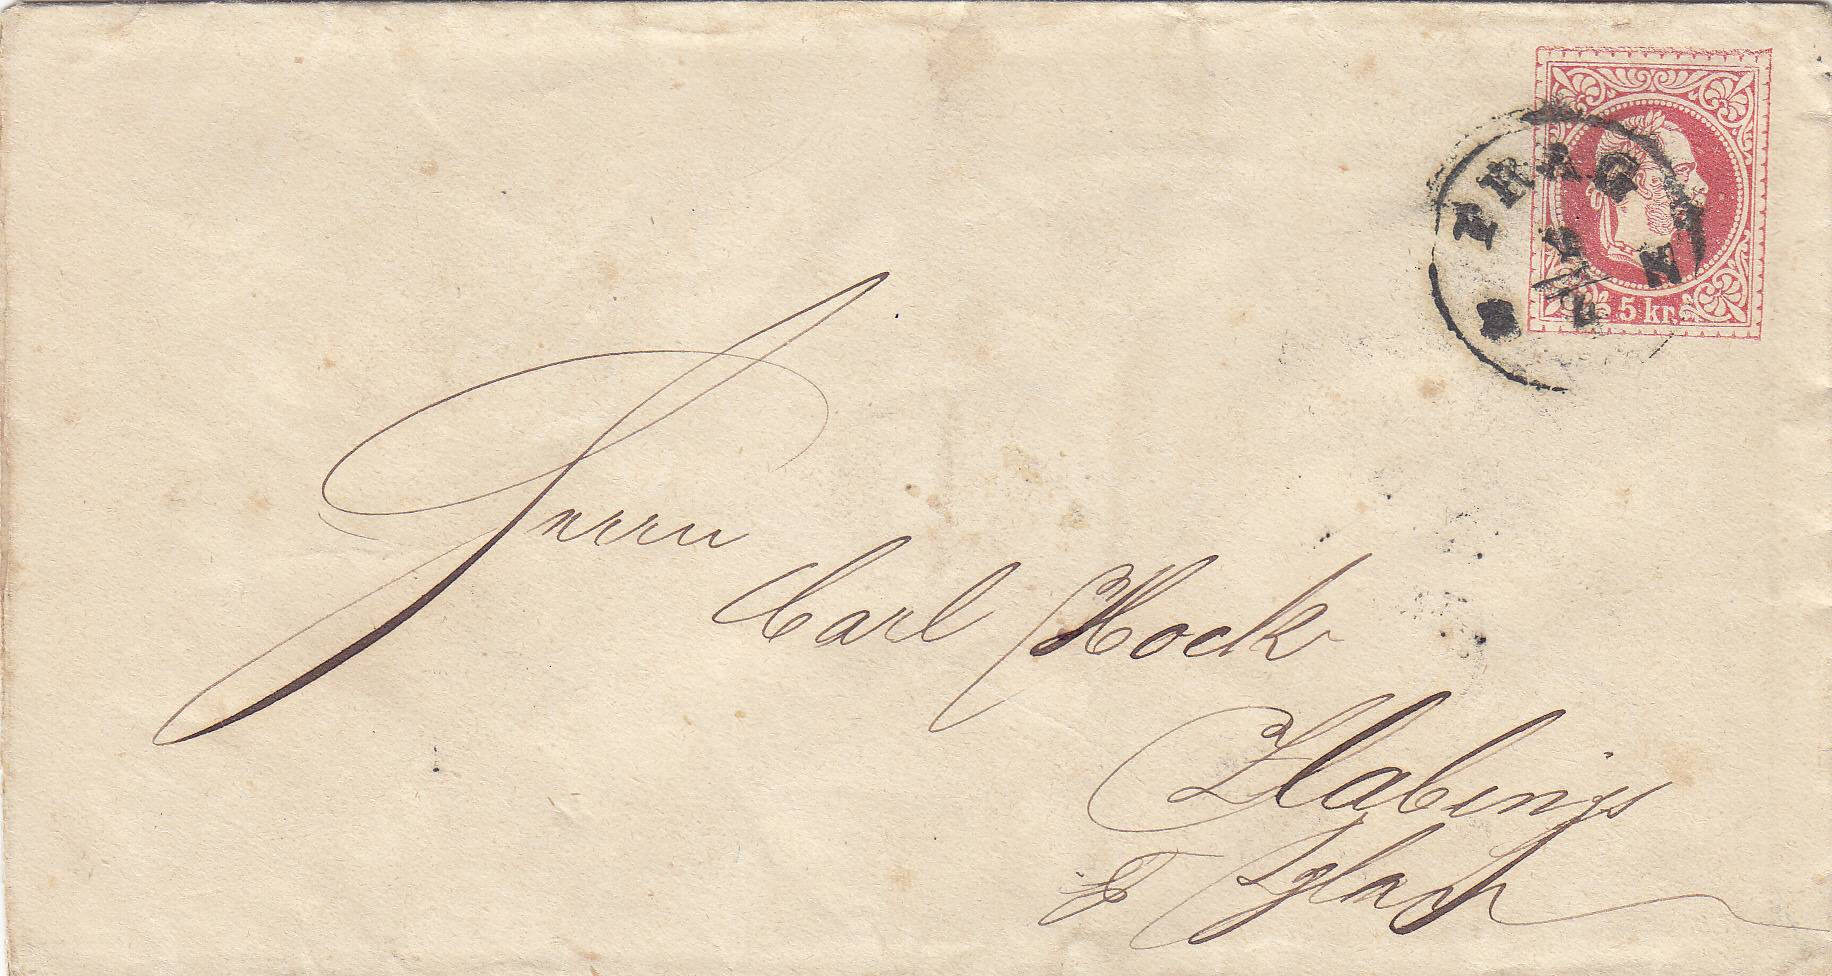 PRAG
5 kr.
Herrn
Carl Hock
Zlabings
Iglau